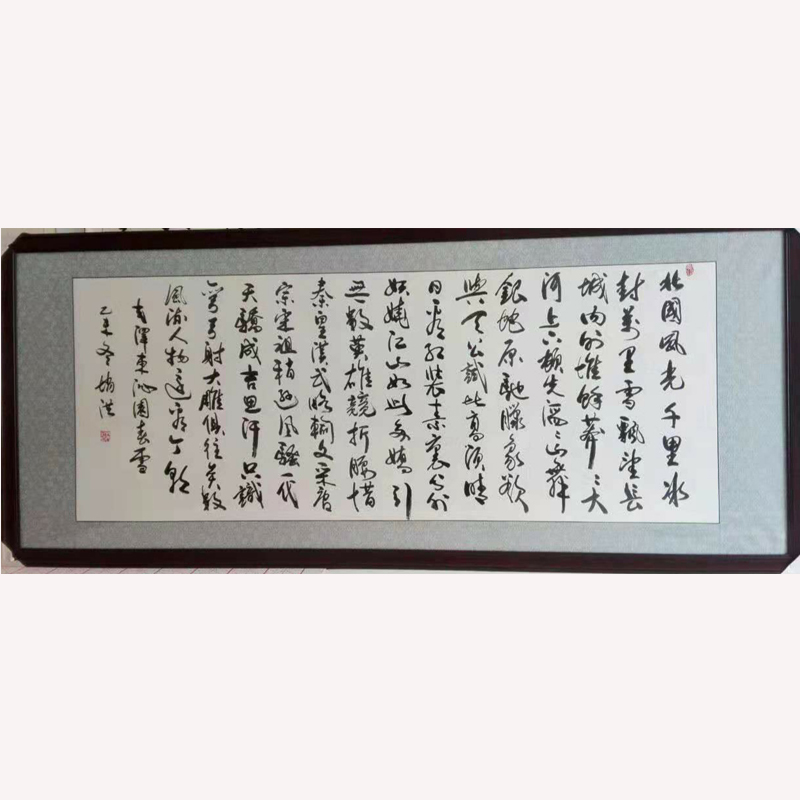 北國風光千里冰
封萬里雪飄望長
城內外惟餘莽〻大
河上下頓失滔〻山舞
銀蛇原馳臘象欲
與天公試比高須晴
日看紅裝素裹分外
妖嬈江山如此多嬌引
無數英雄競折腰惜
秦皇漢武略輸文采唐
宗宋祖稍遜風騷一代
天驕成吉思汗只識
彎弓射大雕俱往矣數
風流人物還看今朝
毛澤東沁園春雪
乙未冬洪